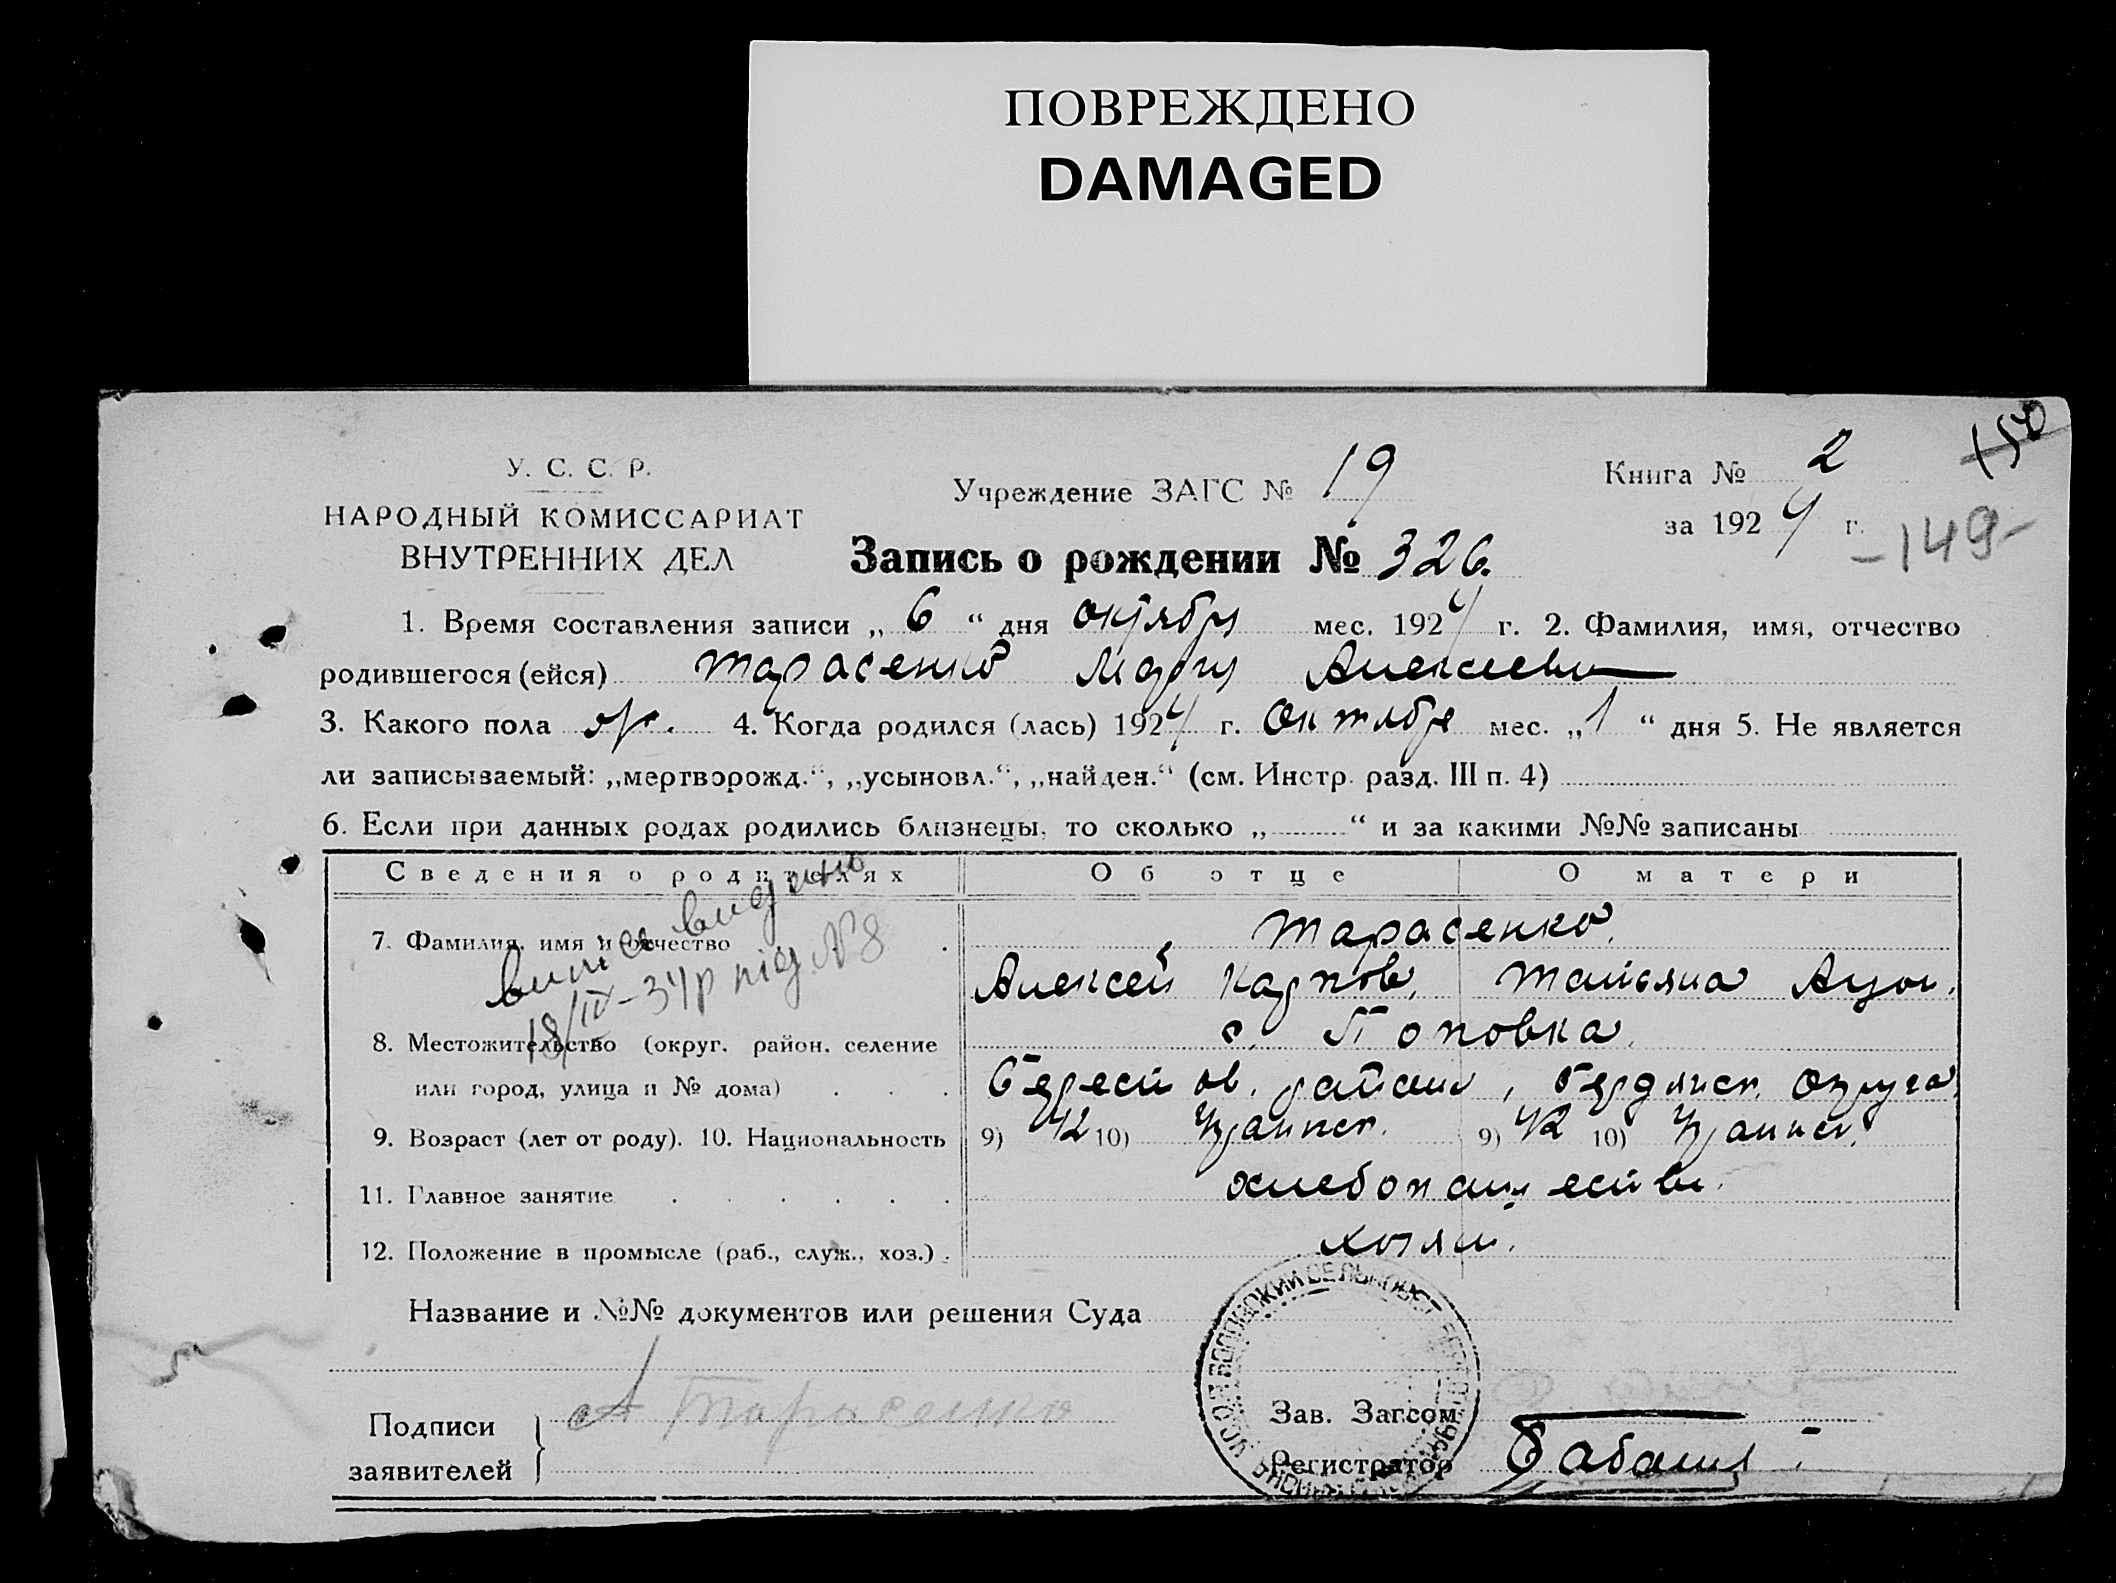 ПОВРЕЖДЕНО
DAMAGED
150
У. С. С. Р.
НАРОДНЫЙ КОМИССАРИАТ
ВНУТРЕННИХ ДЕЛ
Учреждение ЗАГС № 19
Книга № 2
за 1924 г.
-149-
Запись о рождении № 326.
1. Время составления записи „ 6 “ дня октября мес. 1924 г. 2. Фамилия, имя, отчество
родившегося (ейся) Тарасенко Мария Алексеевн
3. Какого пола 4. Когда родился (лась) 1924 г. Октября мес. „ 1 “ дня 5. Не является
ли записываемый: „мертворожд.“, „усыновл.“, „найден.“ (см. Инстр. разд. III п. 4)
6. Если при данных родах родились близнецы, то сколько „ “ и за какими №№ записаны
Сведения о родителях Об отце О матери
7. Фамилия, имя и отчество Тарасенко.
Алексей Карпов. Татьяна
видано
18/IX-34р під №8
с. Поповка.
8. Местожительство (округ, район, селение
или город, улица и № дома) Берестов. района, Бердянск. округа.
9. Возраст (лет от роду). 10. Национальность 9) 42 10) Украинск. 9) 42 10) Украинск.
11. Главное занятие хлебопашеств.
12. Положение в промысле (раб., служ., хоз.) хозяин.
Название и №№ документов или решения Суда
Подписи
заявителей
А Тарасенко
Зав. Загсом
Регистратор